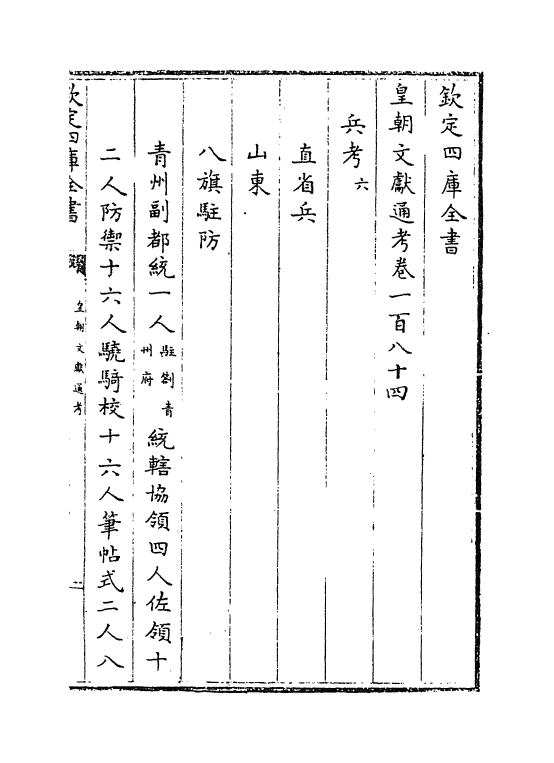 欽定四庫全書
皇朝文獻通考卷一百八十四
兵考六
直省兵
山東
八旗駐防
青州副都統一人駐劄青州府統轄協領四人佐領十
二人防禦十六人驍騎校十六人筆帖式二人八
欽定四庫全書
皇朝文獻通考